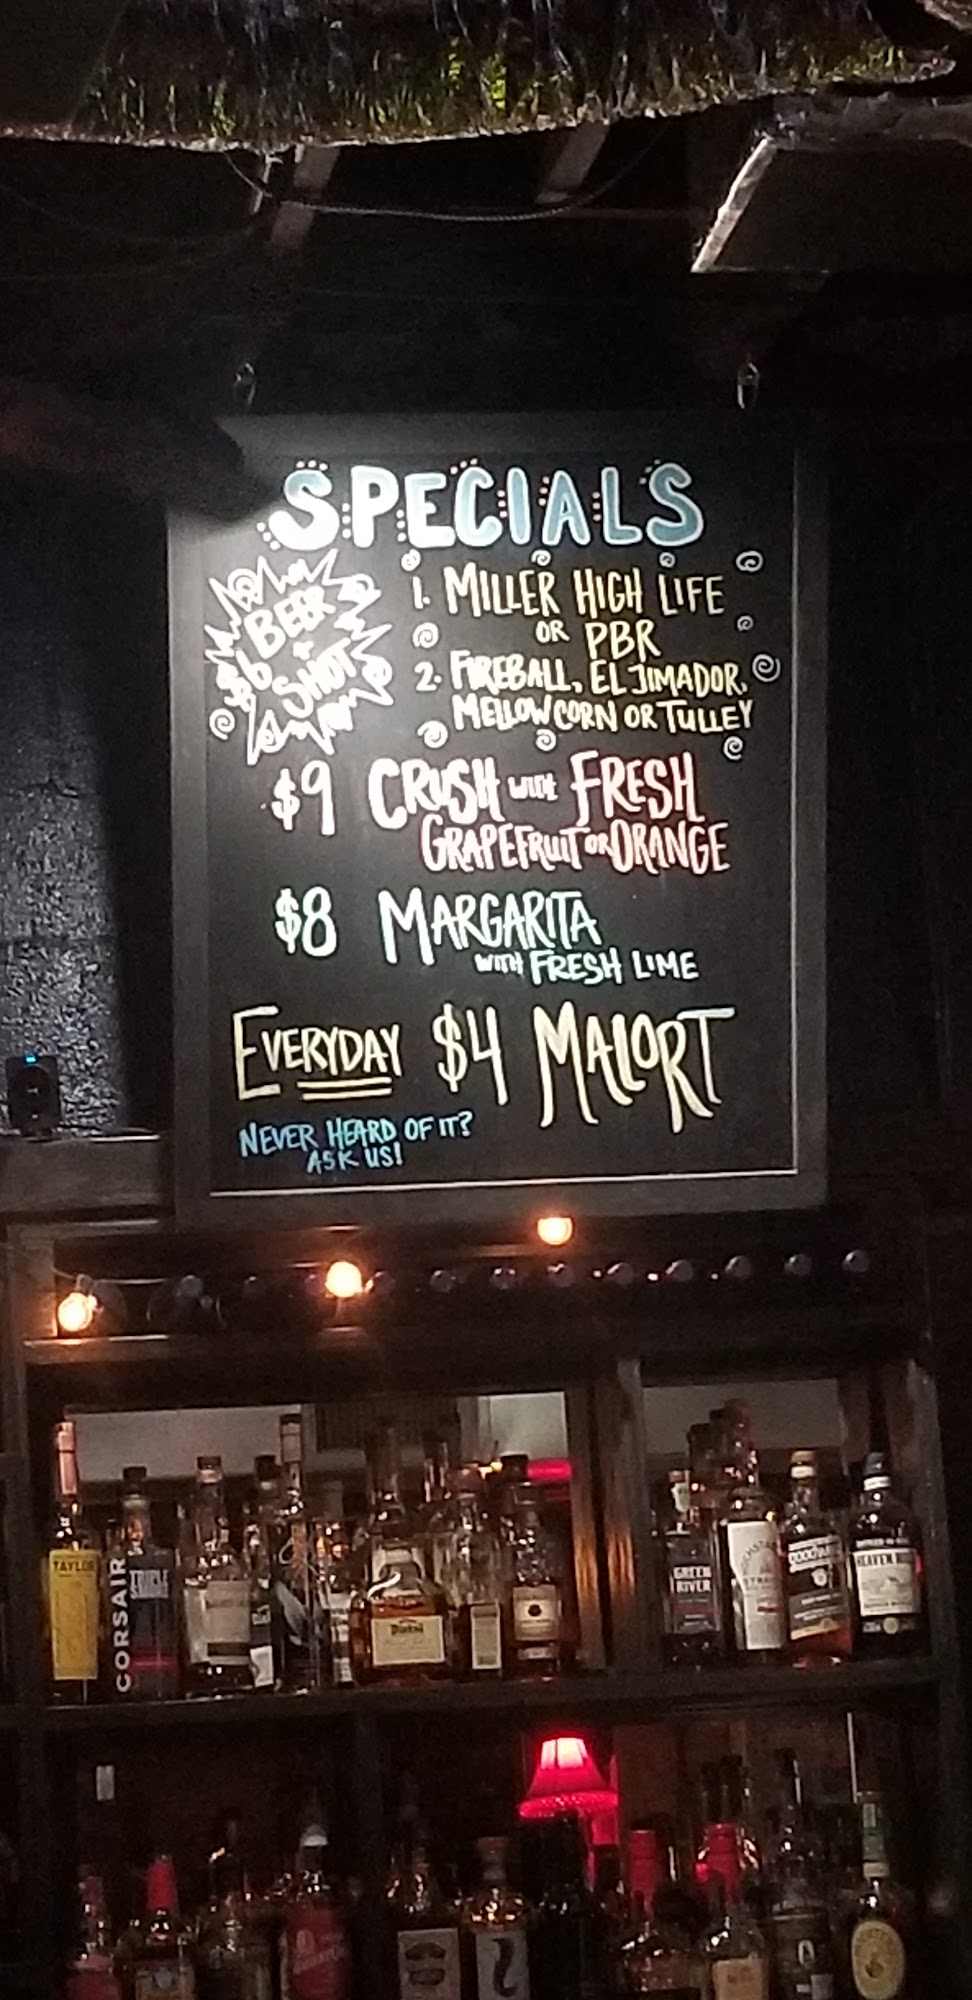 SPECIALS
$6 BEER + SHOT
1. MILLER HIGH LIFE
OR PBR
2. FIREBALL, EL JIMADOR,
MELLOW CORN OR TULLEY
$9 CRUSH WITH FRESH
GRAPEFRUIT OR ORANGE
$8 MARGARITA
WITH FRESH LIME
EVERYDAY $4 MALORT
NEVER HEARD OF IT?
ASK US!
TAYLOR
CORSAIR
TRIPLE
GREEN
RIVER
HEAVEN